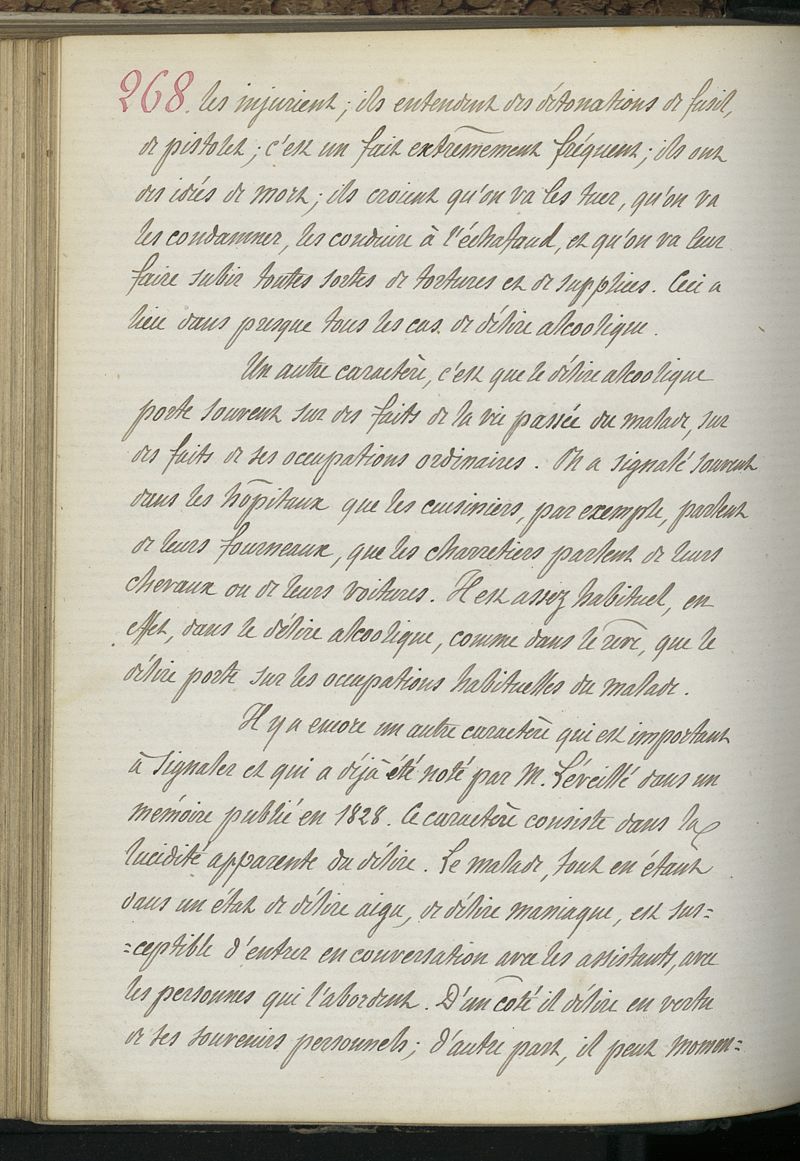 268. les injurient; ils entendent des détonations de fusil,
de pistolet; c'est un fait extrêmement fréquent; ils ont
des idées de mort; ils croient qu'on va les tuer, qu'on va
les condamner, les conduire à l'échafaud, et qu'on va leur
faire subir toutes sortes de tortures et de supplices. Ceci a
lieu dans presque tous les cas de délire alcoolique.
Un autre caractère, c'est que le délire alcoolique
porte souvent sur des faits de la vie passée du malade, sur
des faits de ses occupations ordinaires. On a signalé souvent
dans les hôpitaux que les cuisiniers, par exemple, parlent
de leurs fourneaux, que les charretiers parlent de leurs
chevaux ou de leurs voitures. Il est assez habituel, en
effet, dans le délire alcoolique, comme dans le rêve, que le
délire porte sur les occupations habituelles du malade.
Il y a encore un autre caractère qui est important
à signaler et qui a déjà été noté par M. Léveillé dans un
mémoire publié en 1828. Ce caractère consiste dans la
lucidité apparente du délire. Le malade, tout en étant
dans un état de délire aigu, de délire maniaque, est sus=
=ceptible d'entrer en conversation avec les assistants, avec
les personnes qui l'abordent. D'un côté il délire en vertu
de ses souvenirs personnels; d'autre part, il peut momen=